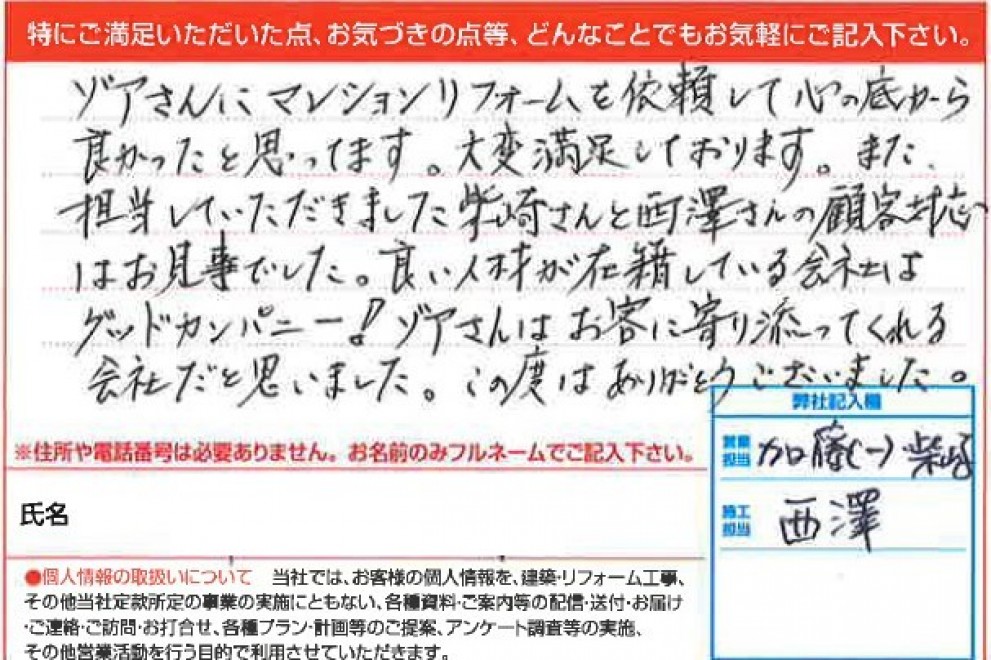 特にご満足いただいた点、お気づきの点等、どんなことでもお気軽にご記入下さい。
ゾアさんにマンションリフォームを依頼して心の底から
良かったと思ってます。大変満足しております。また、
担当していただきました柴崎さんと西澤さんの顧客対応
はお見事でした。良い人材が在籍している会社は
グッドカンパニー!ゾアさんはお客に寄り添ってくれる
会社だと思いました。この度はありがとうございました。
※住所や電話番号は必要ありません。お名前のみフルネームでご記入下さい。
氏名
弊社記入欄
営業担当 加藤(一) 柴崎
施工担当 西澤
●個人情報の取扱いについて 当社では、お客様の個人情報を、建築・リフォーム工事、
その他当社定款所定の事業の実施にともない、各種資料・ご案内等の配信・送付・お届け
・ご連絡・ご訪問・お打合せ、各種プラン・計画等のご提案、アンケート調査等の実施、
その他営業活動を行う目的で利用させていただきます。